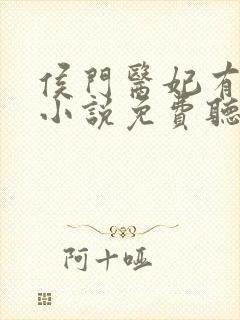 侯門醫妃有
小說免費聽
阿十啞